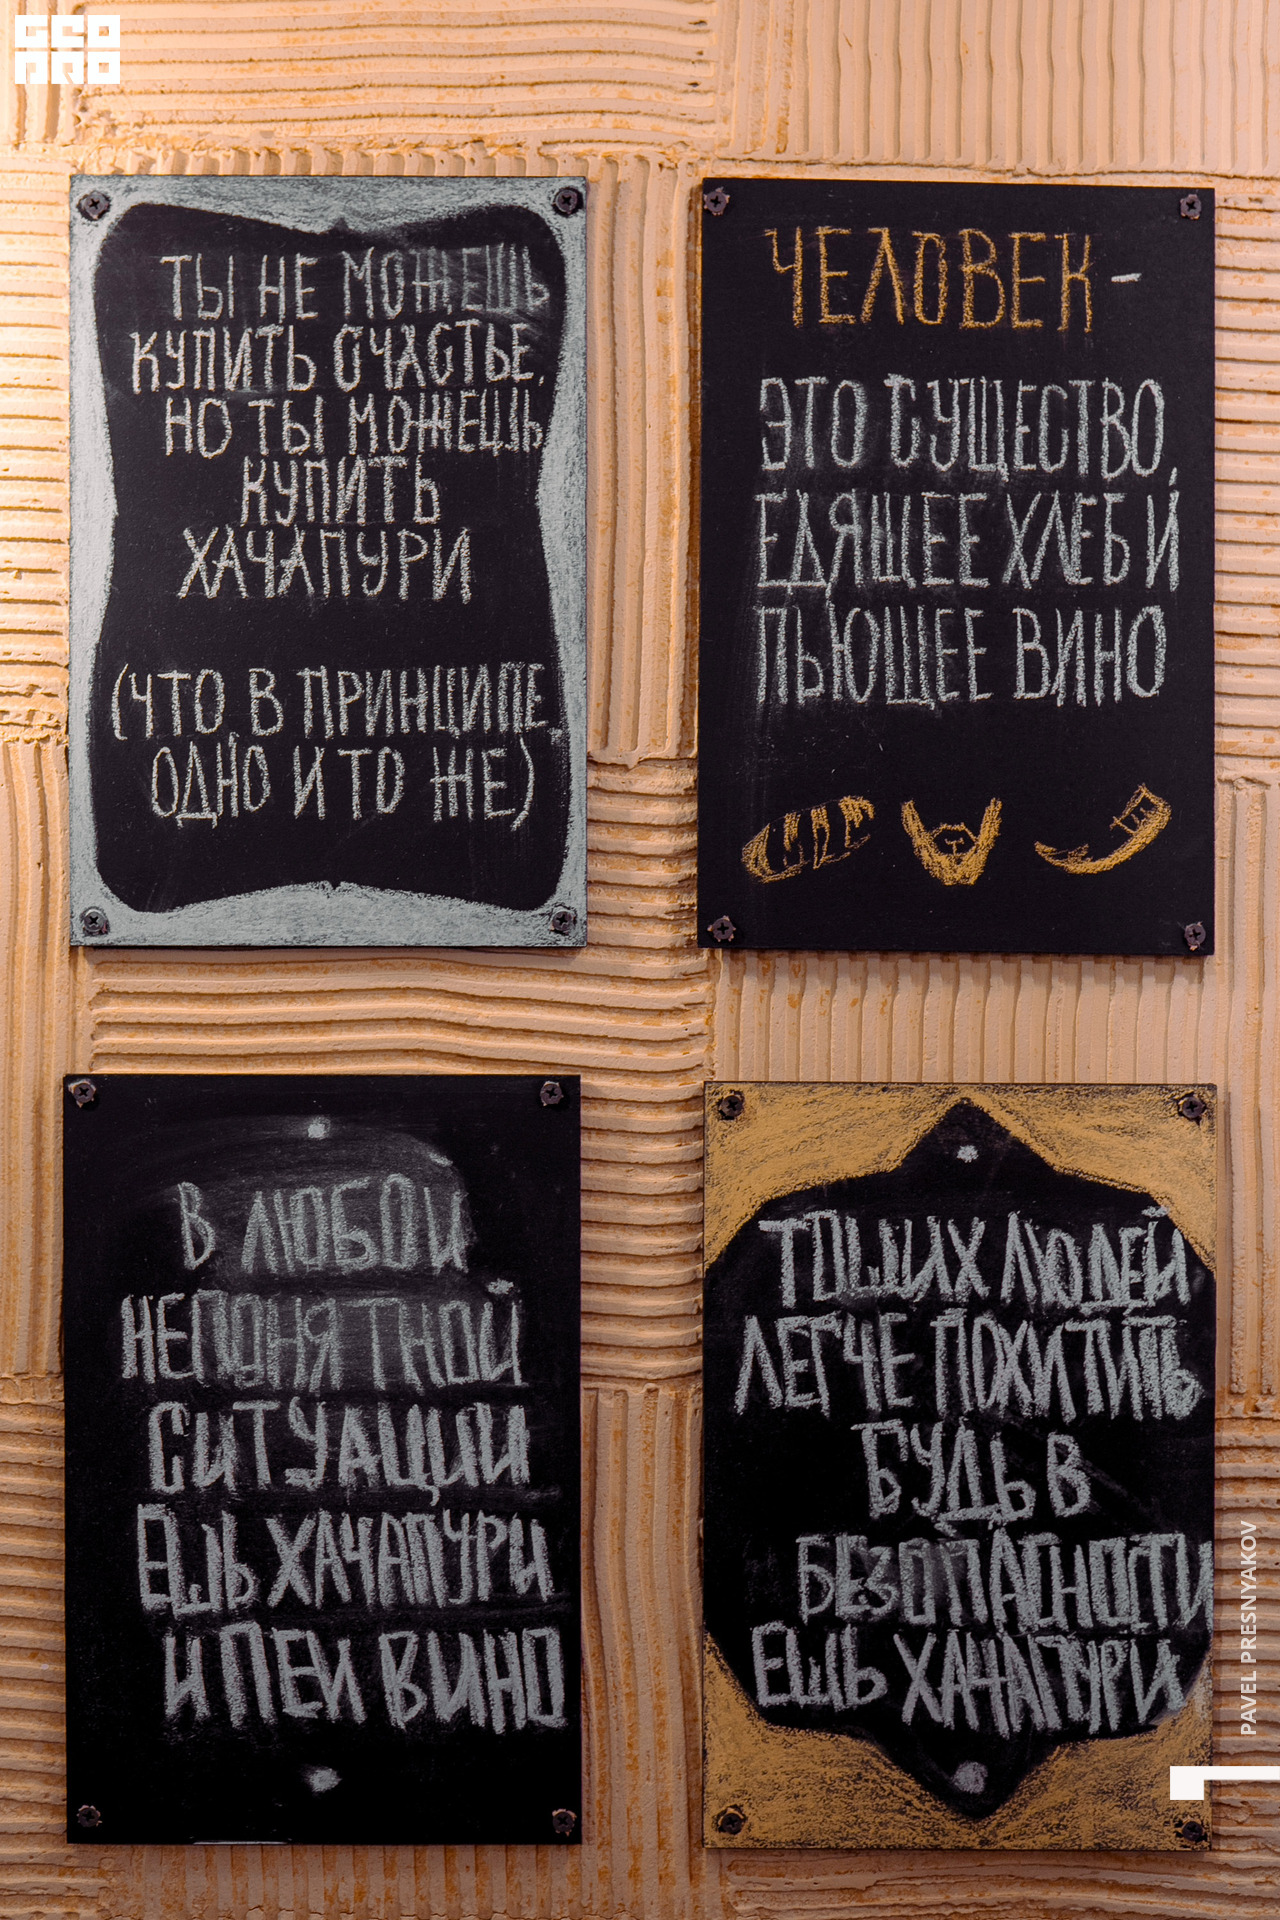 GEO
PRO
ТЫ НЕ МОЖЕШЬ
КУПИТЬ СЧАСТЬЕ,
НО ТЫ МОЖЕШЬ
КУПИТЬ
ХАЧАПУРИ
(ЧТО В ПРИНЦИПЕ,
ОДНО И ТО ЖЕ)
ЧЕЛОВЕК -
ЭТО СУЩЕСТВО,
ЕДЯЩЕЕ ХЛЕБ И
ПЬЮЩЕЕ ВИНО
В ЛЮБОЙ
НЕПОНЯТНОЙ
СИТУАЦИИ
ЕШЬ ХАЧАПУРИ
И ПЕЙ ВИНО
ТОЩИХ ЛЮДЕЙ
ЛЕГЧЕ ПОХИТИТЬ
БУДЬ В
БЕЗОПАСНОСТИ
ЕШЬ ХАЧАПУРИ
PAVEL PRESNYAKOV